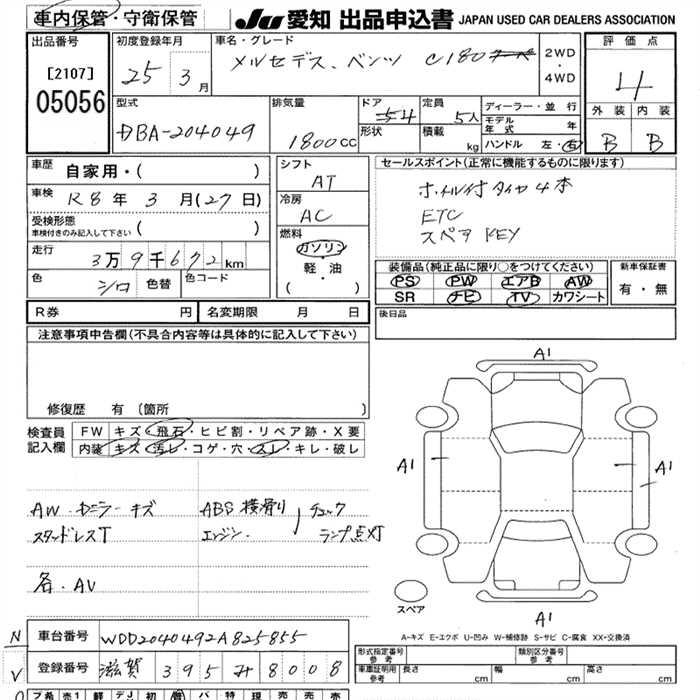 車内保管・守衛保管
JU 愛知 出品申込書 JAPAN USED CAR DEALERS ASSOCIATION
出品番号
[2107]
05056
初度登録年月
25 3月
車名・グレード
メルセデス、ベンツ C180
2WD
・
4WD
評価点
4
外装 内装
B B
型式
DBA-204049
排気量
1800CC
ドア 54
形状
定員 5人
積載 kg
ディーラー・並行
モデル年式 年
ハンドル 左・右
車歴 自家用・( )
車検 R8年 3月(27日)
受検形態
車検付きのみ記入して下さい ( )
走行 3万9千672km
色 シロ 色替 色コード
シフト
AT
冷房
AC
燃料
ガソリン
・
軽・油
( )
セールスポイント(正常に機能するものに限ります)
ホイル付タイヤ4本
ETC
スペアKEY
装備品(純正品に限り○をつけてください)
PS PW エアB AW
SR ナビ TV カワシート
新車保証書
有・無
R券 円 名変期限 月 日
後日品
注意事項申告欄(不具合内容等は具体的に記入して下さい)
修復歴 有(箇所 )
検査員記入欄
FW キズ・飛石・ヒビ割・リペア跡・X要
内装 キズ・汚レ・コゲ・穴・スレ・キレ・破レ
AW.センラー キズ
スタッドレスT
各.AV
ABS 横滑り
エンジン.
チェック
ランプ点灯
A1
A1
A1
A1
スペア
A-キズ E-エクボ U-凹み W-補修跡 S-サビ C-腐食 XX-交換済
N
V
車台番号 WDD2040492A825855
登録番号 滋賀 395 み 8008
形式指定番号 参考
類別区分番号 参考
車庫証明用 参考 長さ cm 幅 cm 高さ cm